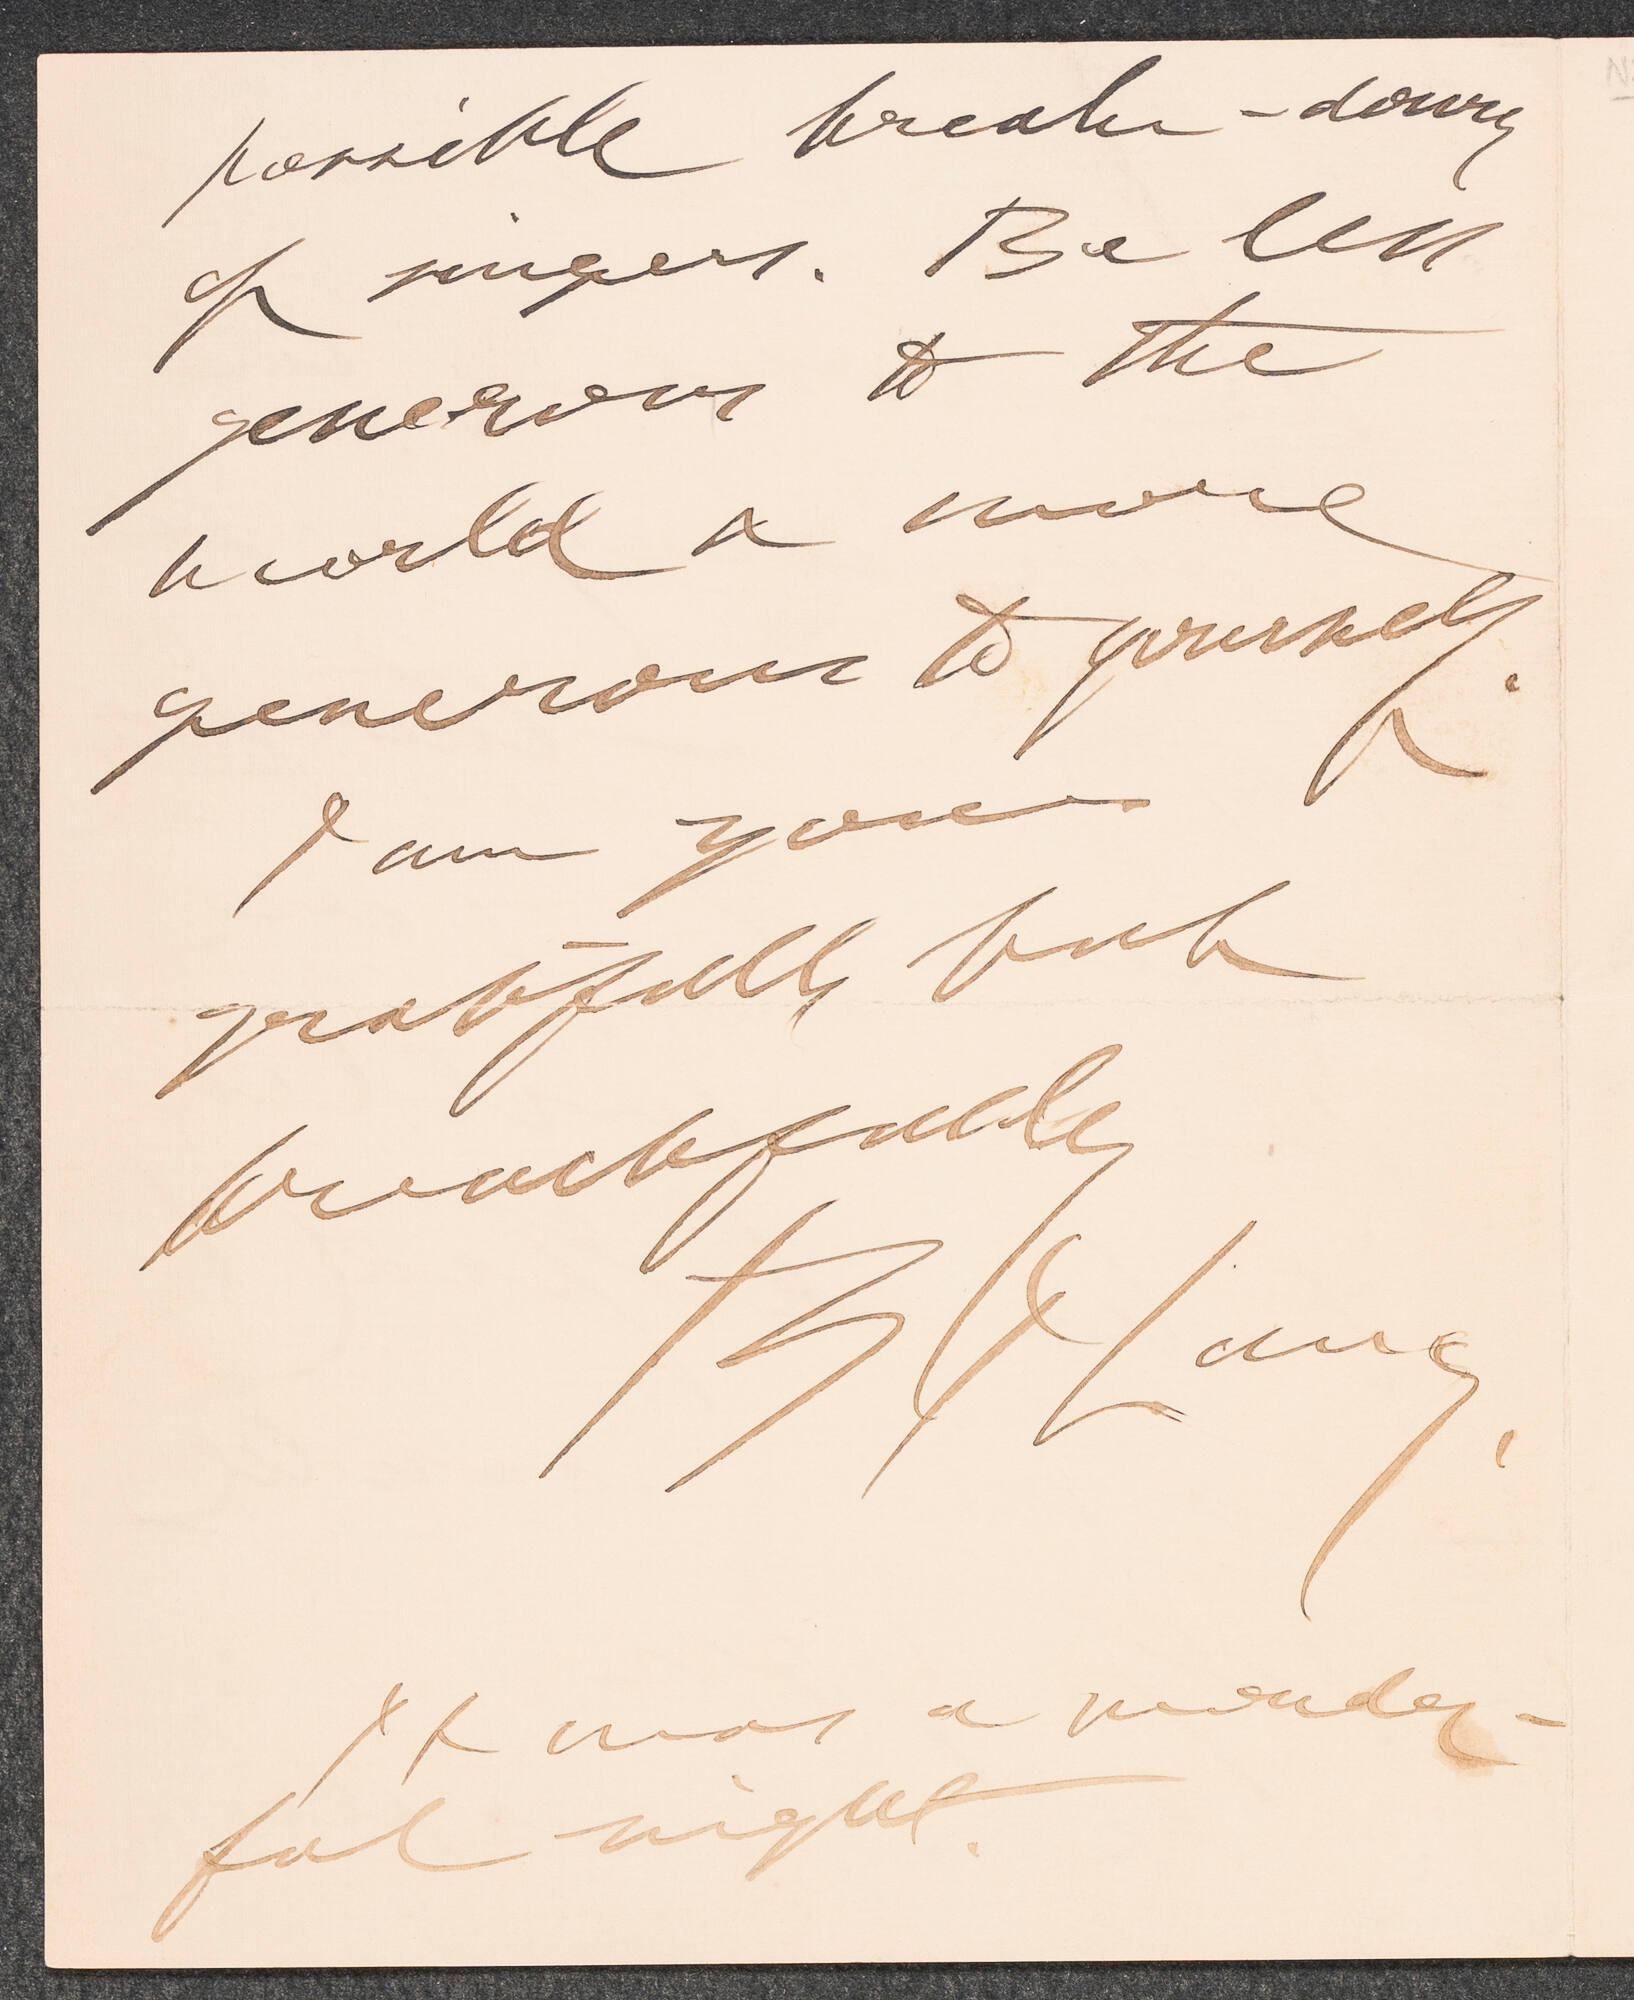 possible break-down
of singers. Be less
generous to the
world & more
generous to yourself.
I am yours
gratefully but
B J Lang.
It was a wonder-
ful night.